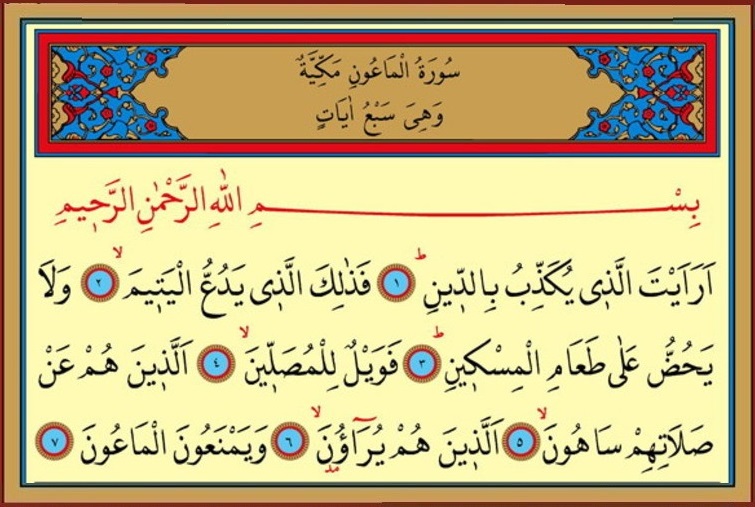 سُورَةُ الْمَاعُونِ مَكِّيَّةٌ
وَهِىَ سَبْعُ اٰيَاتٍ
بِسْمِ اللّٰهِ الرَّحْمٰنِ الرَّحٖيمِ
اَرَاَيْتَ الَّذٖى يُكَذِّبُ بِالدّٖينِؕ ﴿١﴾ فَذٰلِكَ الَّذٖى يَدُعُّ الْيَتٖيمَۙ ﴿٢﴾ وَلَا
يَحُضُّ عَلٰى طَعَامِ الْمِسْكٖينِؕ ﴿٣﴾ فَوَيْلٌ لِلْمُصَلّٖينَۙ ﴿٤﴾ اَلَّذٖينَ هُمْ عَنْ
صَلَاتِهِمْ سَاهُونَۙ ﴿٥﴾ اَلَّذٖينَ هُمْ يُرَٓاؤُ۫نَۙ ﴿٦﴾ وَيَمْنَعُونَ الْمَاعُونَ ﴿٧﴾